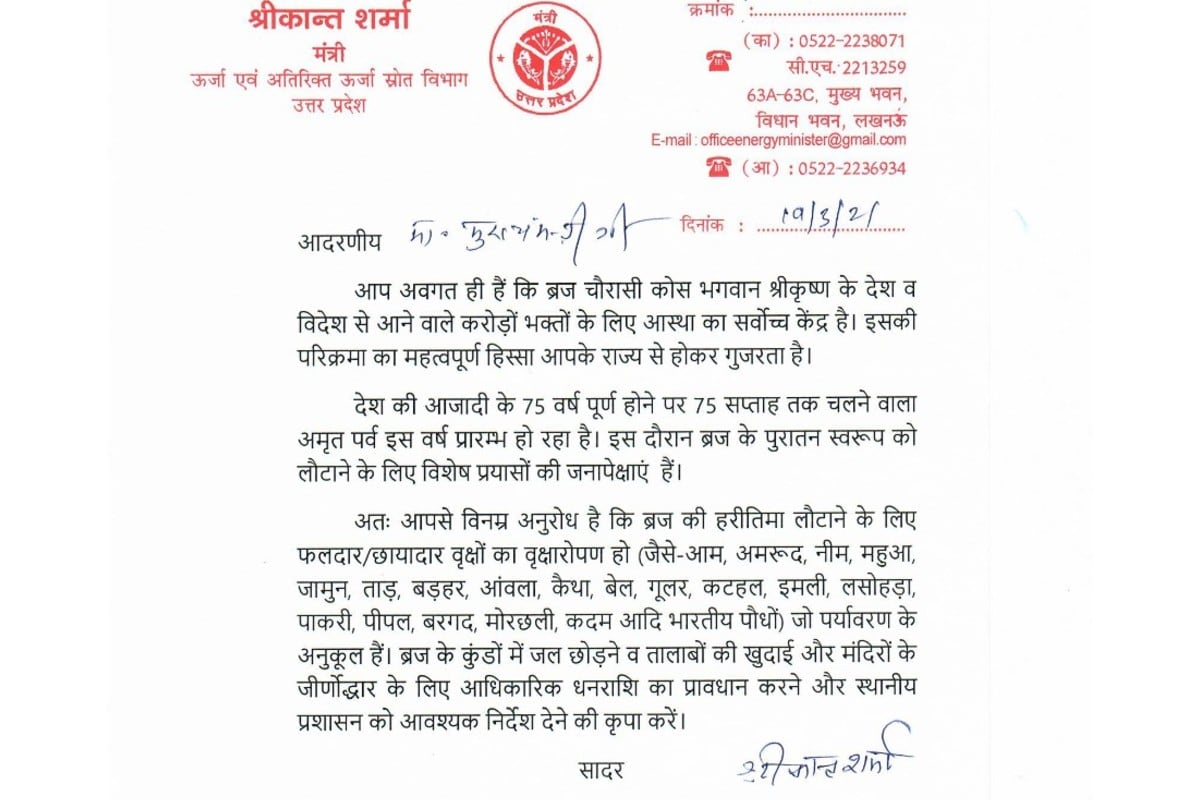 श्रीकान्त शर्मा
मंत्री
ऊर्जा एवं अतिरिक्त ऊर्जा स्रोत विभाग
उत्तर प्रदेश
मंत्री
उत्तर प्रदेश
क्रमांक :
(का) : 0522-2238071
सी.एच. 2213259
63A-63C, मुख्य भवन,
विधान भवन, लखनऊ
E-mail : officeenergyminister@gmail.com
(आ) : 0522-2236934
दिनांक : 19/3/21
आदरणीय मा॰ मुख्यमंत्री जी
आप अवगत ही हैं कि ब्रज चौरासी कोस भगवान श्रीकृष्ण के देश व
विदेश से आने वाले करोड़ों भक्तों के लिए आस्था का सर्वोच्च केंद्र है। इसकी
परिक्रमा का महत्वपूर्ण हिस्सा आपके राज्य से होकर गुजरता है।
देश की आजादी के 75 वर्ष पूर्ण होने पर 75 सप्ताह तक चलने वाला
अमृत पर्व इस वर्ष प्रारम्भ हो रहा है। इस दौरान ब्रज के पुरातन स्वरूप को
लौटाने के लिए विशेष प्रयासों की जनापेक्षाएं हैं।
अतः आपसे विनम्र अनुरोध है कि ब्रज की हरीतिमा लौटाने के लिए
फलदार/छायादार वृक्षों का वृक्षारोपण हो (जैसे-आम, अमरूद, नीम, महुआ,
जामुन, ताड़, बड़हर, आंवला, कैथा, बेल, गूलर, कटहल, इमली, लसोहड़ा,
पाकरी, पीपल, बरगद, मोरछली, कदम आदि भारतीय पौधों) जो पर्यावरण के
अनुकूल हैं। ब्रज के कुंडों में जल छोड़ने व तालाबों की खुदाई और मंदिरों के
जीर्णोद्धार के लिए आधिकारिक धनराशि का प्रावधान करने और स्थानीय
प्रशासन को आवश्यक निर्देश देने की कृपा करें।
सादर
श्रीकान्त शर्मा